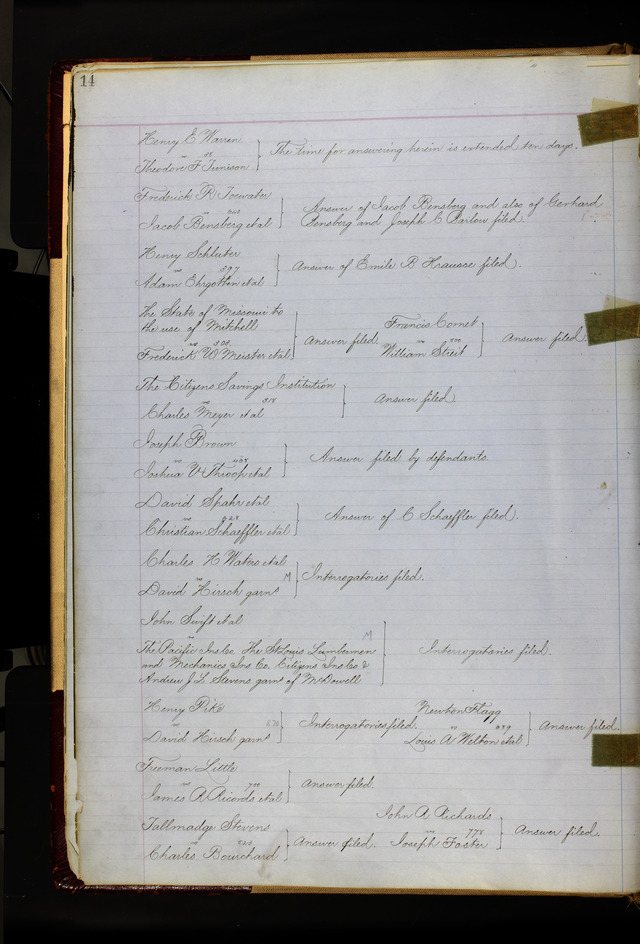 14
Henry E Warren
vs 85
Theodore F Tunison
The time for answering herein is extended ten days.
Frederick R Toewater
vs
Jacob Bensberg et al
Answer of Jacob Bensberg and also of Gerhard
Bensberg and Joseph C Barlow filed.
Henry Schluter
vs 397
Adam Ehrgotten et al
Answer of Emile B Krausse filed.
The State of Missouri to
the use of Mitchell
vs 308
Frederick W Meister et al
Answer filed.
Francis Cornet
vs
William Streit
Answer filed.
The Citizens Savings Institution
vs 318
Charles Meyer et al
Answer filed
Joseph Brown
vs 408
Joshua V Throop et al
Answer filed by defendants.
David Spahr et al
vs 527
Christian Schaeffler et al
Answer of C Schaeffler filed.
Charles H Waters et al
vs M
David Hirsch garns
Interrogatories filed.
John Swift et al
vs M
The Pacific Ins Co. The St Louis Lumbermen
and Mechanics Ins Co. Citizens Ins Co &
Andrew J L Stevens garns of McDowell
Interrogatories filed.
Henry Pike
vs 670
David Hirsch garns
Interrogatories filed.
Newton Flagg
vs 699
Louis A Welton et al
Answer filed.
Freeman Little
vs 700
James R Ricords et al
Answer filed.
Tallmadge Stevens
vs
Charles Bourchard
Answer filed.
John A Richards
vs 778
Joseph Foster
Answer filed.